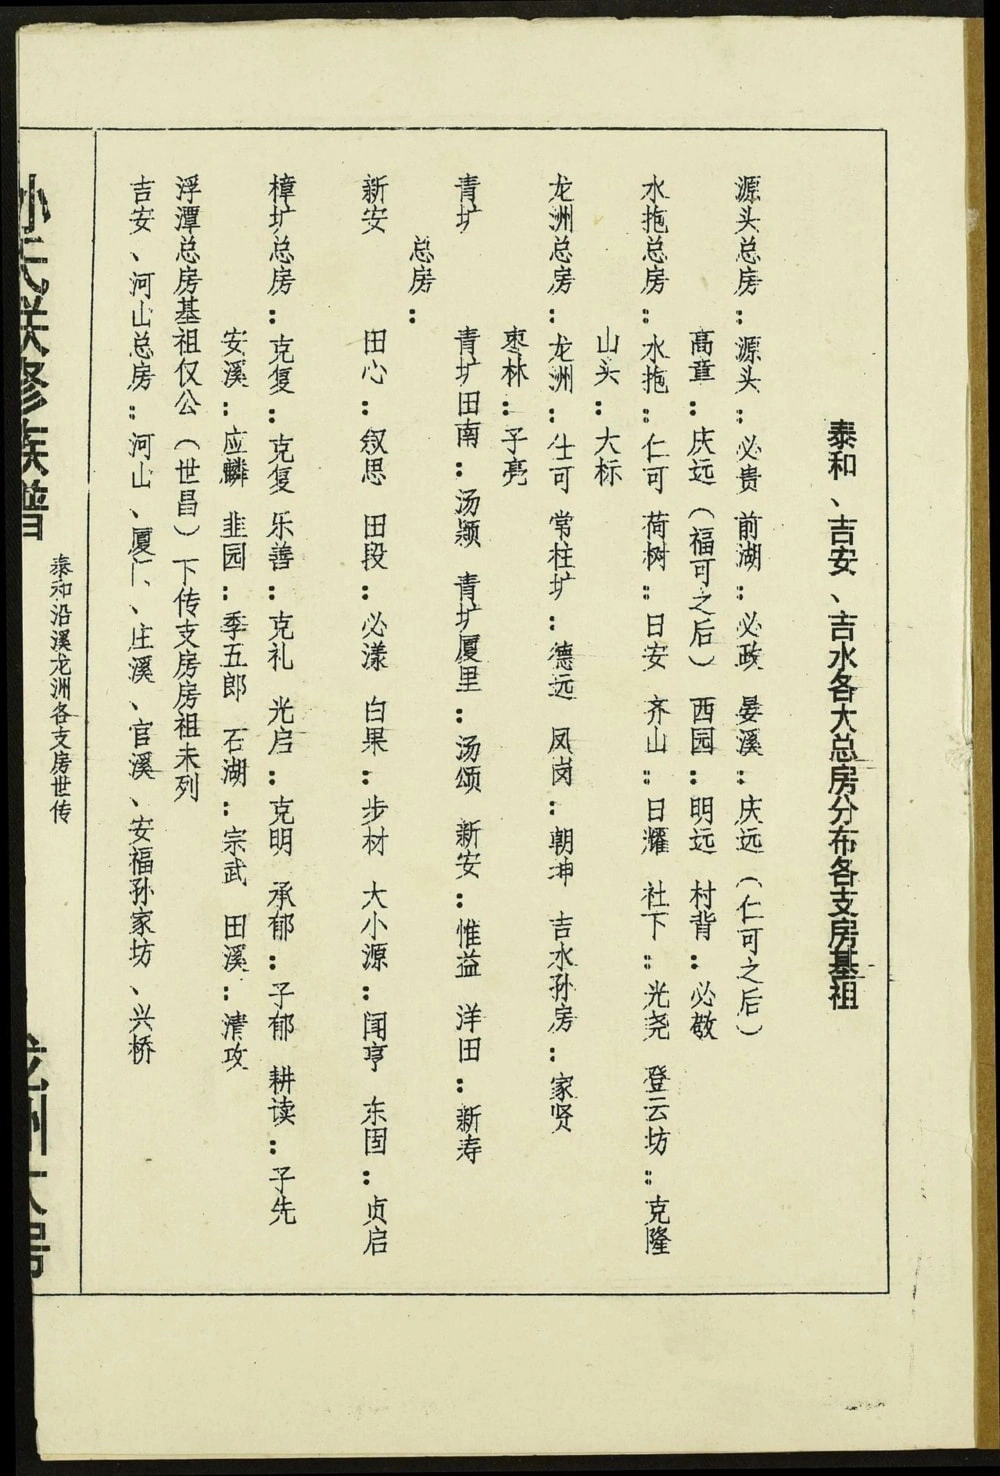 泰和、吉安、吉水各大总房分布各支房基祖
源头总房：源头：必贵 前湖：必政 晏溪：庆远（仁可之后）
高童：庆远（福可之后） 西园：明远 村背：必敬
水拖总房：水拖：仁可 荷树：日安 齐山：日耀 社下：光尧 登云坊：克隆
山头：大标
龙洲总房：龙洲：仕可 常柱圹：德远 凤岗：朝坤 吉水孙房：家贤
枣林：子亮
青圹 青圹田南：汤颖 青圹厦里：汤颂 新安：惟益 洋田：新寿
总房：
新安 田心：叙思 田段：必漾 白果：步材 大小源：闻亨 东固：贞启
樟圹总房：克复：克复 乐善：克礼 光启：克明 承郁：子郁 耕读：子先
安溪：应麟 韭园：季五郎 石湖：宗武 田溪：清攻
浮潭总房基祖仅公（世昌）下传支房房祖未列
吉安、河山总房：河山、厦仁、庄溪、官溪、安福孙家坊、兴桥
孙氏联修族谱
泰和沿溪龙洲各支房世传
龙洲大房